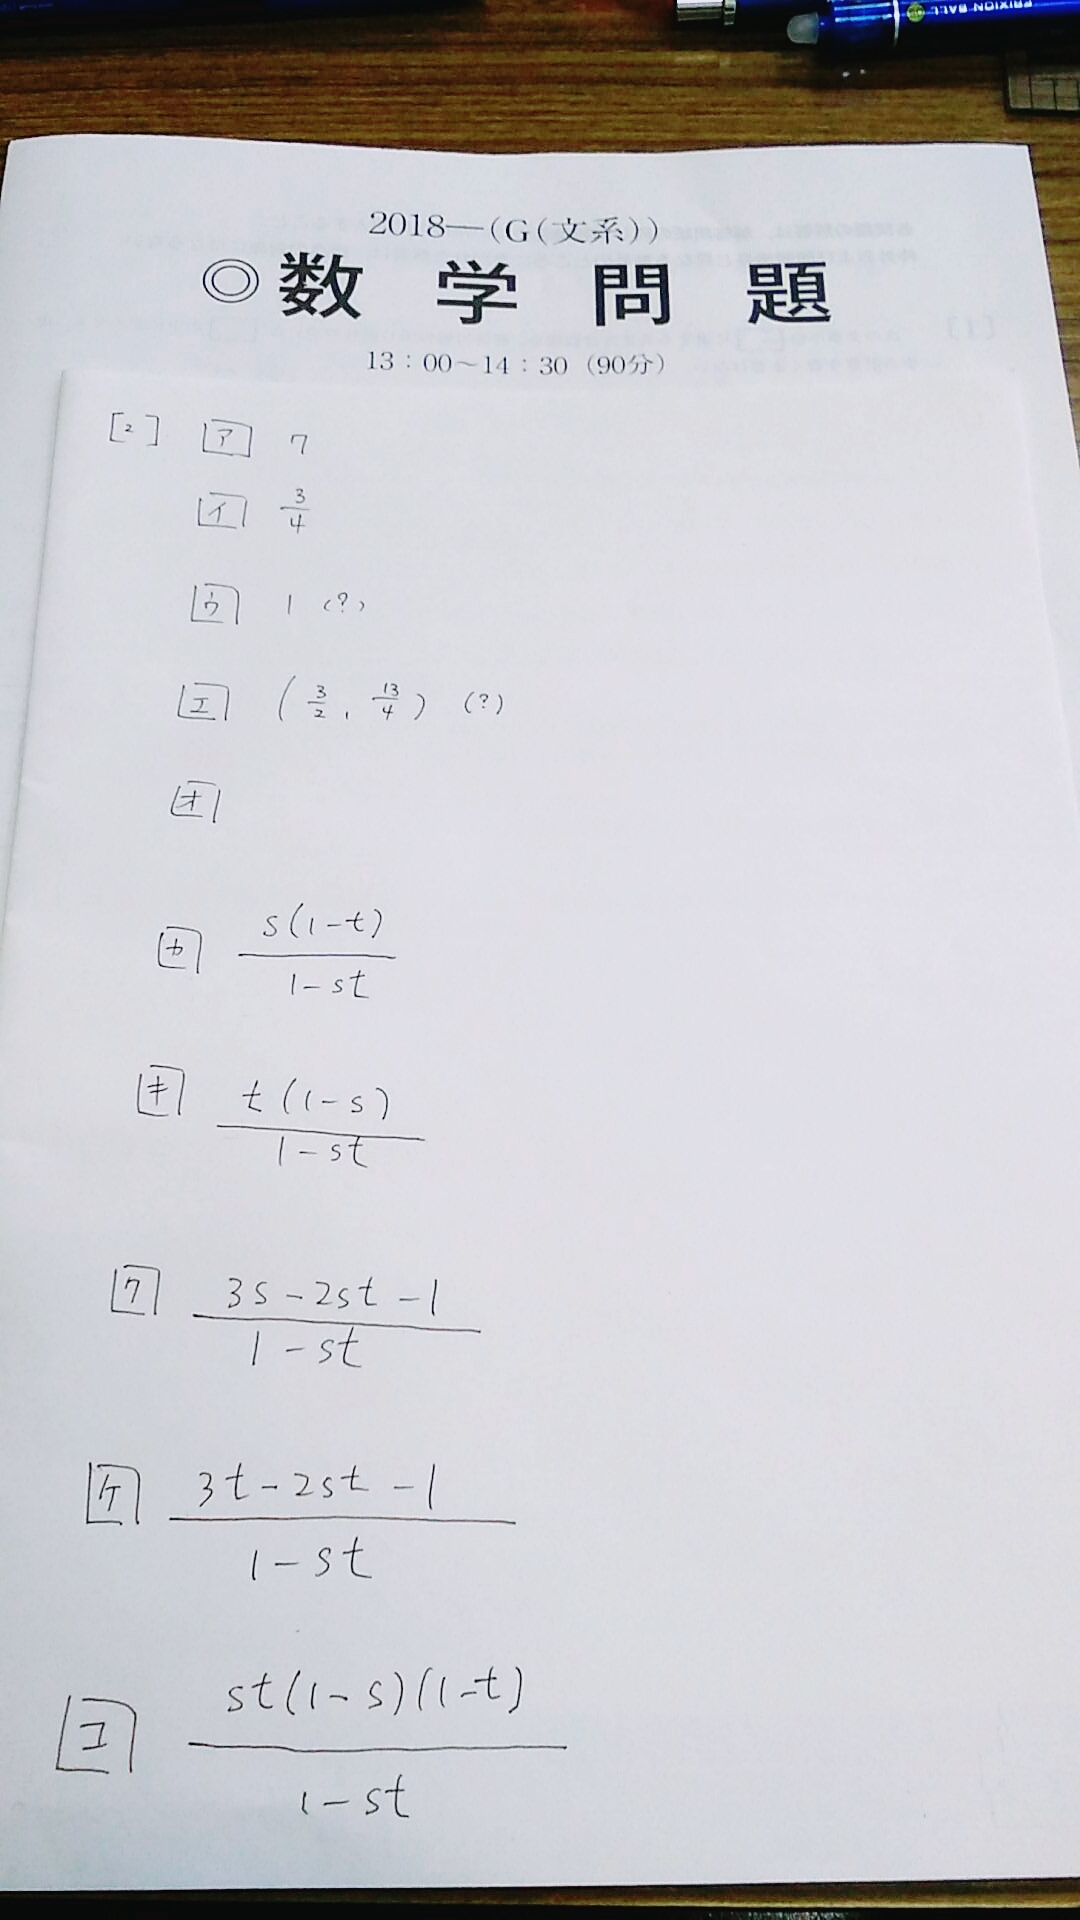 FRIXION BALL
2018―(G(文系))
◎数学問題
13:00〜14:30 (90分)
[2] ア 7
イ 3/4
ウ 1 (?)
エ (3/2, 13/4) (?)
オ
カ s(1-t)/1-st
キ t(1-s)/1-st
ク 3s-2st-1/1-st
ケ 3t-2st-1/1-st
コ st(1-s)(1-t)/1-st